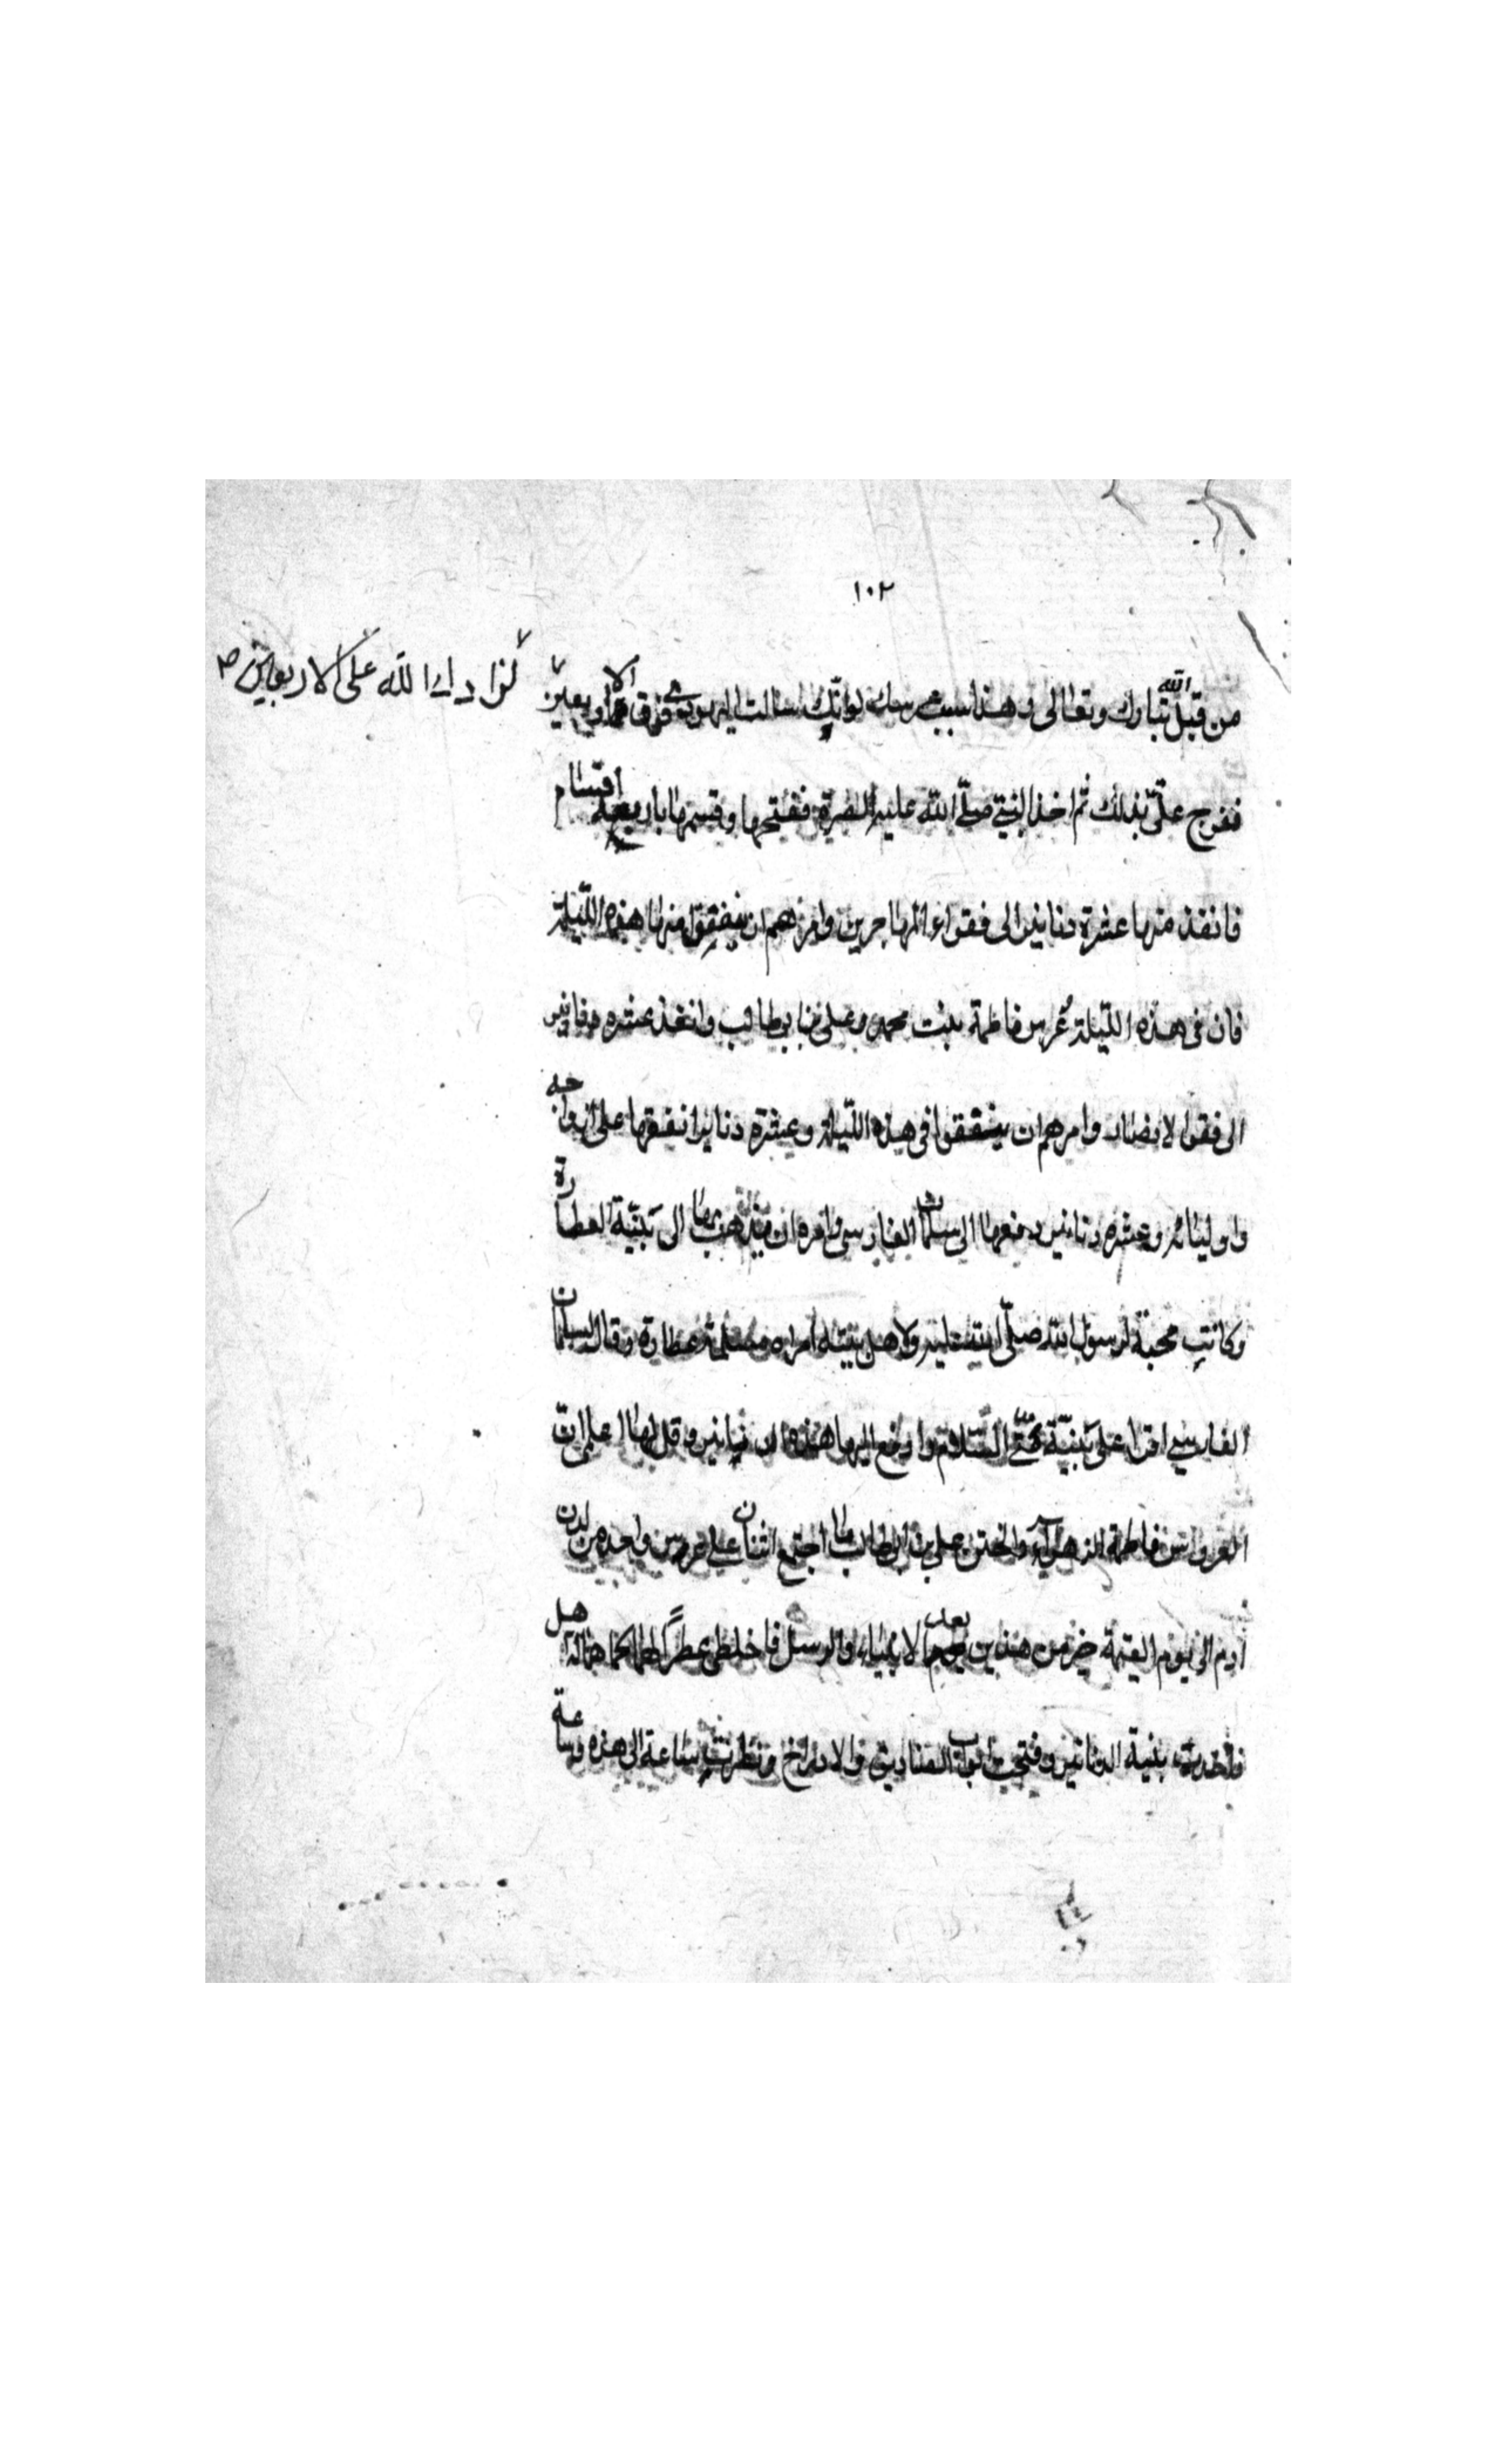 ١٠٢
من قبل الله تبارك وتعالى وهذا سبب عرسك لو انك سالت اليهودي فوق الاربعين
لزاد الله على الاربعين
ففرح علي بذلك ثم اخذ النبي صلّى الله عليه الصرة ففتحها وقسمها باربعة اقسام
فانفذ منها عشرة دنانير الى فقراء المهاجرين وامرهم ان ينفقوا منها هذه اللّيلة
فان فى هذه اللّيلة عُرس فاطمة بنت محمد وعلي بن ابيطالب وانفذ عشره دنانير
الى فقرا لانصار وامرهم ان ينفقوا فى هذه اللّيلة وعشرة دنانير انفقها على ازواجه
واوليائه وعشره دنانير دفعها الى سلمان الفارسى وامره ان يذهب بها الى بَنيّة العطارة
وكانت محبة لرسول الله صلّى الله عليه ولاهل بيته امراه مسلمة عطارة وقال لسلمان
الفارسي اقرا على بَنيّة منّي السّلام وادفع اليها هذه الدنانير وقل لها اعلمي انّ
العروس فاطمة الزهراء والختن علي بن ابيطالب ما اجتمع اثنان على عرس واحد من لدن
ادم الى يوم القيمة خير من هذين بعد الانبياء والرسل فاخلطى عطرًا لهما كما هما له اهل
فاخذت بنية الدنانير وفتحت ابواب الصناديق والادراخ ونظرت ساعة الى هذه وساعة